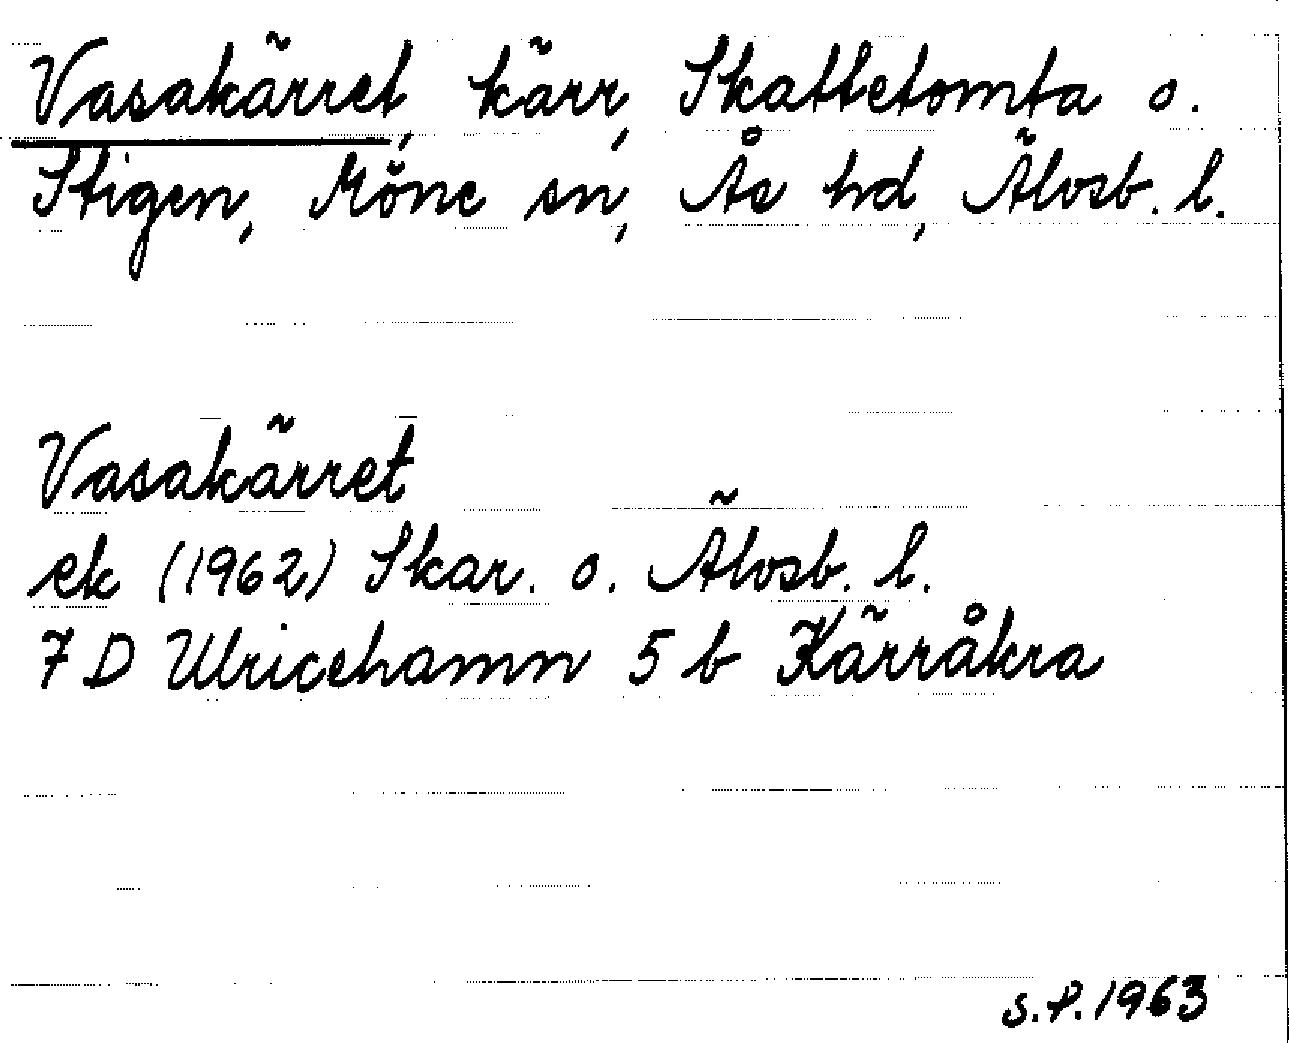 Vasakärret, kärr, Skattetomta o.
Stigen, Möne sn, Ås hd, Älvsb. l.
Vasakärret
ek (1962) Skar. o. Älvsb. l.
7 D Ulricehamn 5 b Kärråkra
S.P. 1963